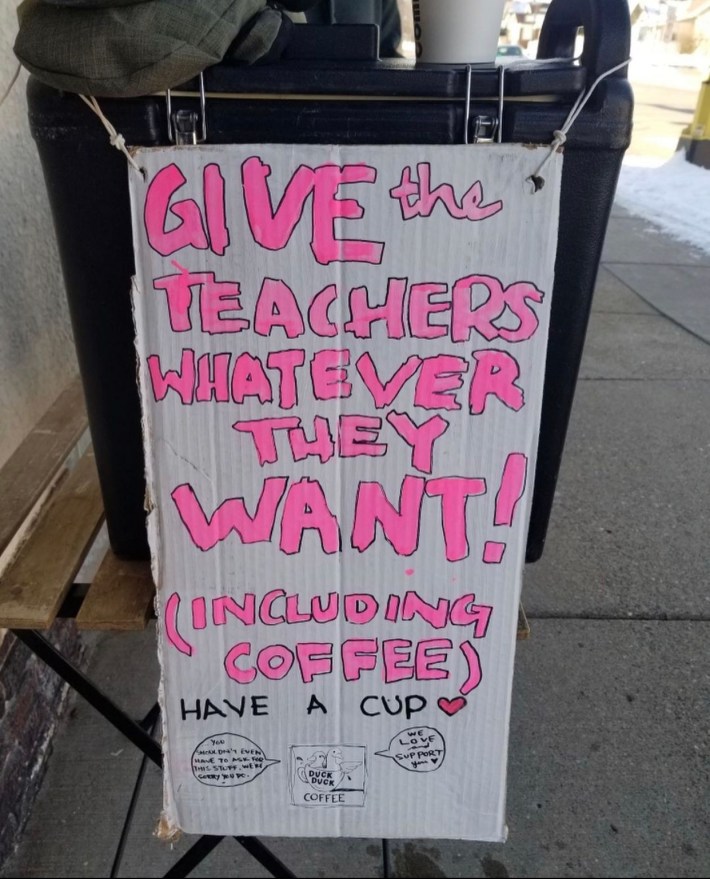 GIVE the
TEACHERS
WHATEVER
THEY
WANT!
(INCLUDING
COFFEE)
HAVE A CUP
YOU
SHOULDN'T EVEN
HAVE TO ASK FOR
THIS STUFF, WE'RE
SORRY YOU DO.
DUCK
DUCK
COFFEE
WE
LOVE
and
SUPPORT
you